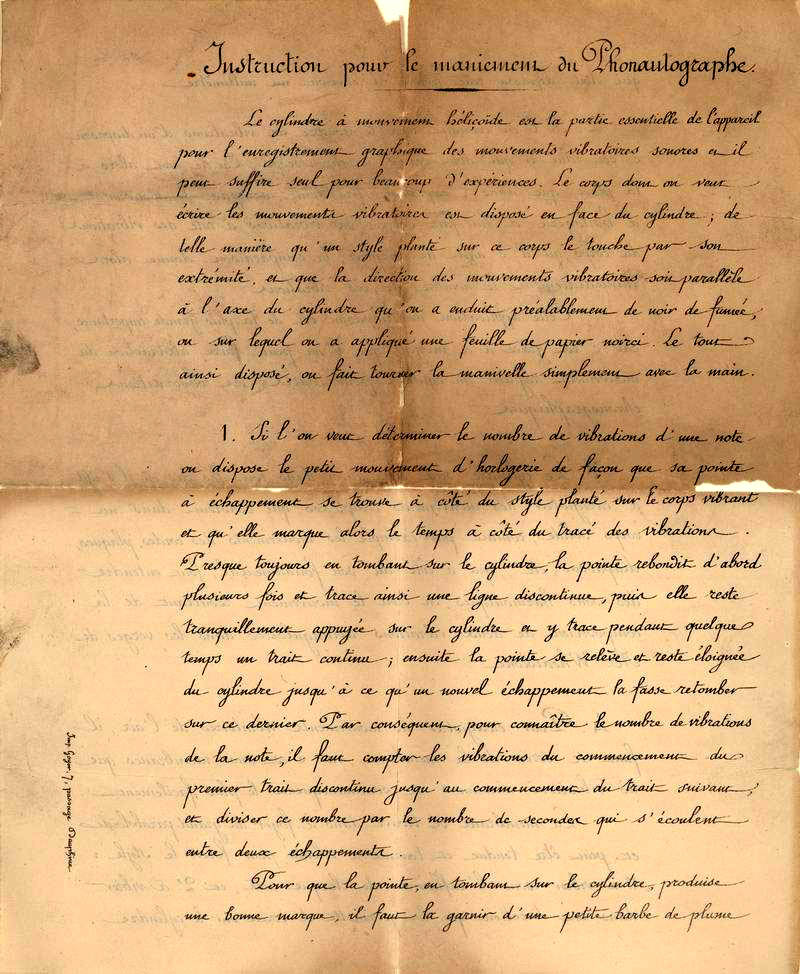 Instruction pour le maniement du Phonautographe.
Le cylindre à mouvement héliçoïde est la partie essentielle de l'appareil
pour l'enregistrement graphique des mouvements vibratoires sonores et il
peut suffire seul pour beaucoup d'expériences. Le corps dont on veut
écrire les mouvements vibratoires est disposé en face du cylindre ; de
telle manière qu'un style planté sur ce corps le touche par son
extrémité, et que la direction des mouvements vibratoires soit parallèle
à l'axe du cylindre qu'on a enduit préalablement de noir de fumée,
ou sur lequel on a appliqué une feuille de papier noirci. Le tout
ainsi disposé, on fait tourner la manivelle simplement avec la main.
1. Si l'on veut déterminer le nombre de vibrations d'une note
on dispose le petit mouvement d'horlogerie de façon que sa pointe
à échappement se trouve à côté du style planté sur le corps vibrant
et qu'elle marque alors le temps à côté du tracé des vibrations.
Presque toujours en tombant sur le cylindre, la pointe rebondit d'abord
plusieurs fois et trace ainsi une ligne discontinue, puis elle reste
tranquillement appuyée sur le cylindre et y trace pendant quelque
temps un trait continu ; ensuite la pointe se relève et reste éloignée
du cylindre jusqu'à ce qu'un nouvel échappement la fasse retomber
sur ce dernier. Par conséquent, pour connaître le nombre de vibrations
de la note, il faut compter les vibrations du commencement du
premier trait discontinu jusqu'au commencement du trait suivant,
et diviser ce nombre par le nombre de secondes qui s'écoulent
entre deux échappements.
Pour que la pointe, en tombant sur le cylindre, produise
une bonne marque, il faut la garnir d'une petite barbe de plume
7, passage Dauphine